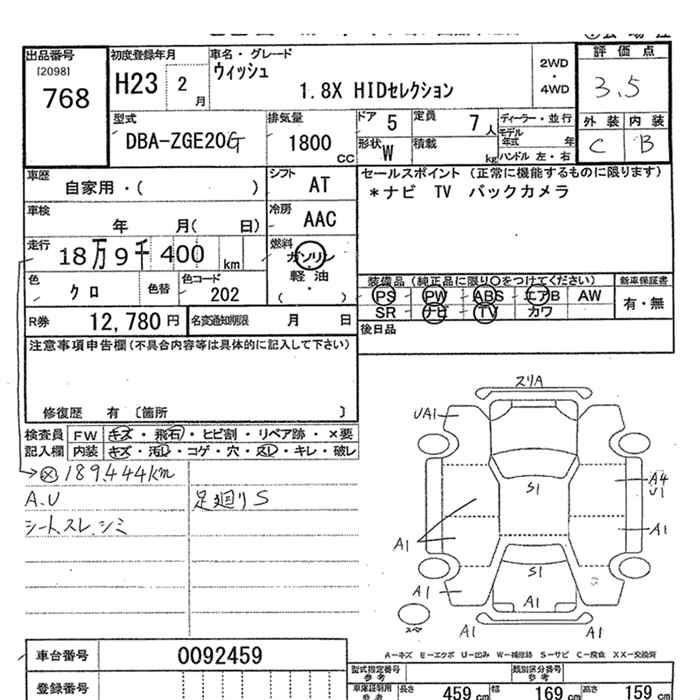 出品番号 初度登録年月 車名・グレード 評価点
[2098] ウィッシュ 2WD
768 H23 2月 1.8X HIDセレクション ・ 3.5
4WD
型式 排気量 ドア 5 定員 7人 ディーラー・並行 外装 内装
DBA-ZGE20G 1800cc 形状 W 積載 kg モデル年式 年 C B
ハンドル 左・右
車歴 自家用・( ) シフト AT セールスポイント (正常に機能するものに限ります)
*ナビ TV バックカメラ
車検 年 月( 日) 冷房 AAC
走行 18万9千400km 燃料 ガソリン・軽油 ( )
色 クロ 色替 色コード 202 装備品 (純正品に限り○をつけてください) 新車保証書
PS PW ABS エアB AW 有・無
R券 12,780円 名変通知期限 月 日 SR ナビ TV カワ
後日品
注意事項申告欄(不具合内容等は具体的に記入して下さい)
修復歴 有 〔箇所 〕
検査員 FW キズ・飛石・ヒビ割・リペア跡・×要
記入欄 内装 キズ・汚レ・コゲ・穴・スレ・キレ・破レ
189,444km
A.U 足廻りS
シートスレ、シミ
スリA
UA1
S1
A4
U1
A1
A1
S1
A1
スペア
A1
A1
A-キズ E-エクボ U-凹み W-補修跡 S-サビ C-腐食 XX-交換済
車台番号 0092459 型式指定番号 参考 類別区分番号 参考
登録番号 車庫証明用 参考 長さ 459cm 幅 169cm 高さ 159cm